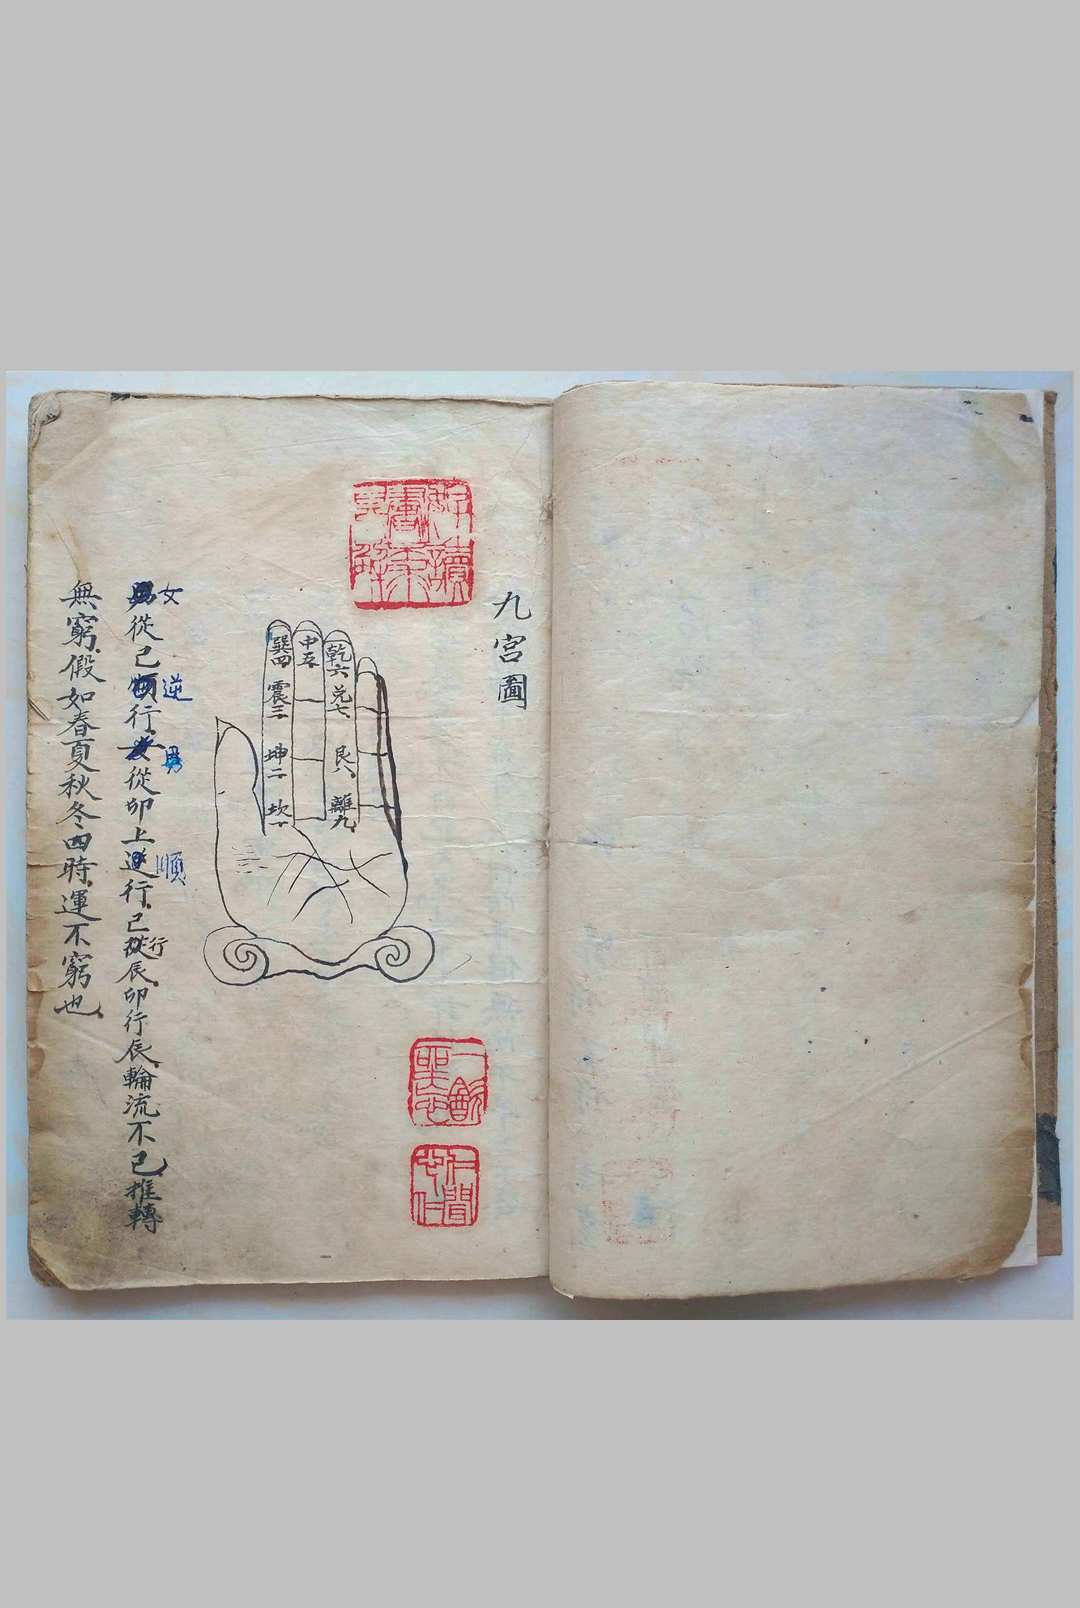 九宮圖
巽四、
震三、
坤二、
坎一、
中五、
乾六、
兌七、
艮八、
離九、
從己行、從卯上行、己從辰、卯行辰、輪流不已、推轉
女
逆
男
順
行
無窮、假如春夏秋冬四時、運不窮也、